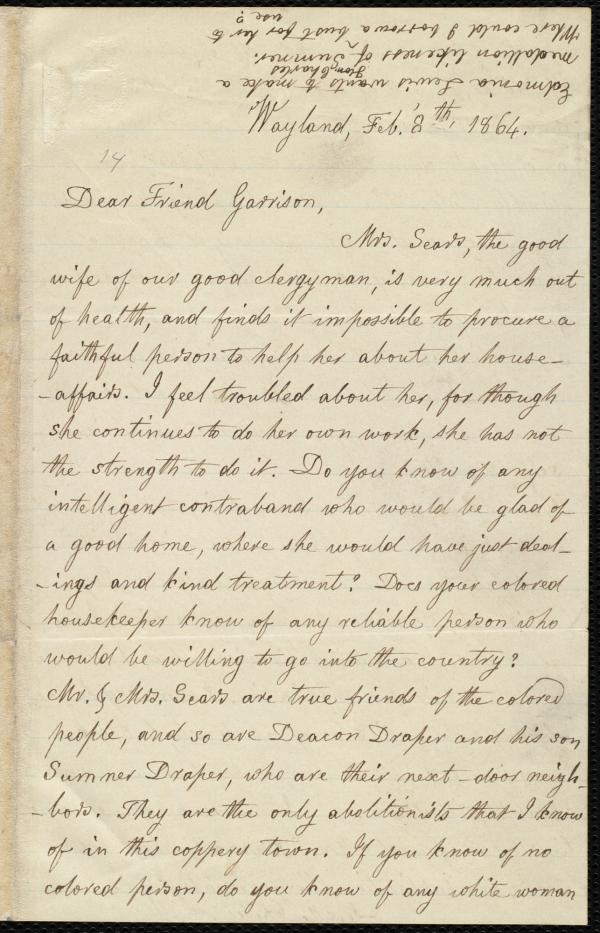 Edmonia Lewis wants to make a
medallion likeness of Hon. Charles Sumner.
Where could I borrow a bust for her to
use?
Wayland, Feb. 8th, 1864.
14
Dear Friend Garrison,
Mrs. Sears, the good
wife of our good clergyman, is very much out
of health, and finds it impossible to procure a
faithful person to help her about her house-
-affairs. I feel troubled about her, for though
she continues to do her own work, she has not
the strength to do it. Do you know of any
intelligent contraband who would be glad of
a good home, where she would have just deal-
-ings and kind treatment? Does your colored
housekeeper know of any reliable person who
would be willing to go into the country?
Mr. & Mrs. Sears are true friends of the colored
people, and so are Deacon Draper and his son
Sumner Draper, who are their next-door neigh-
-bors. They are the only abolitionists that I know
of in this coppery town. If you know of no
colored person, do you know of any white woman